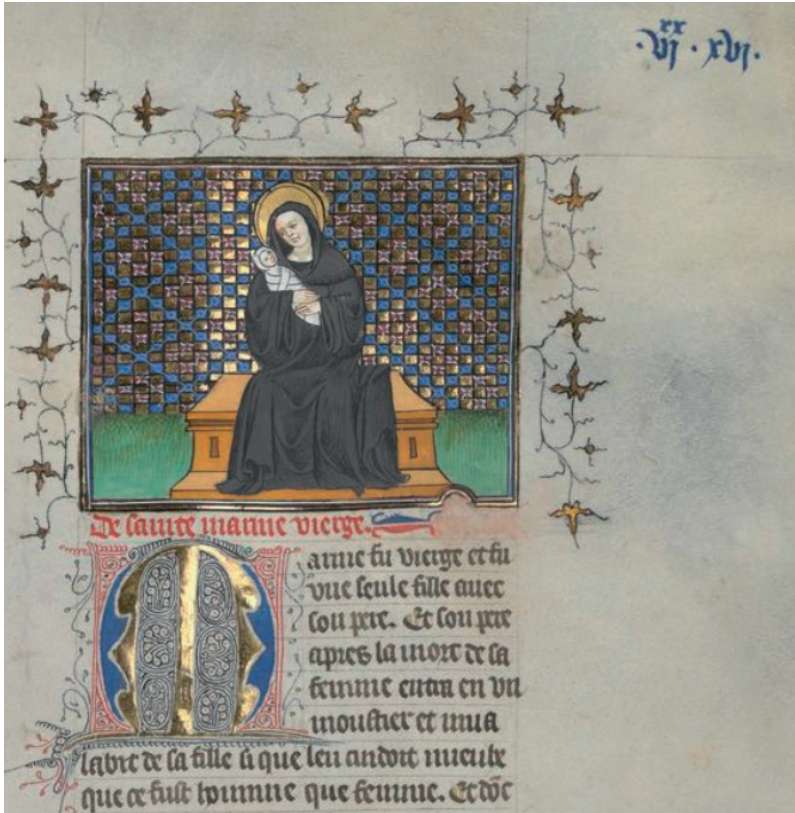 .VI.XX XVI.
De sainte marine vierge.
Marine fu vierge et fu
vne seule fille auec
son pere. Et son pere
apres la mort de sa
femme entra en vn
moustier et mua
labit de sa fille si que len cuidoit mieulx
que ce fust homme que femme. Et dōc